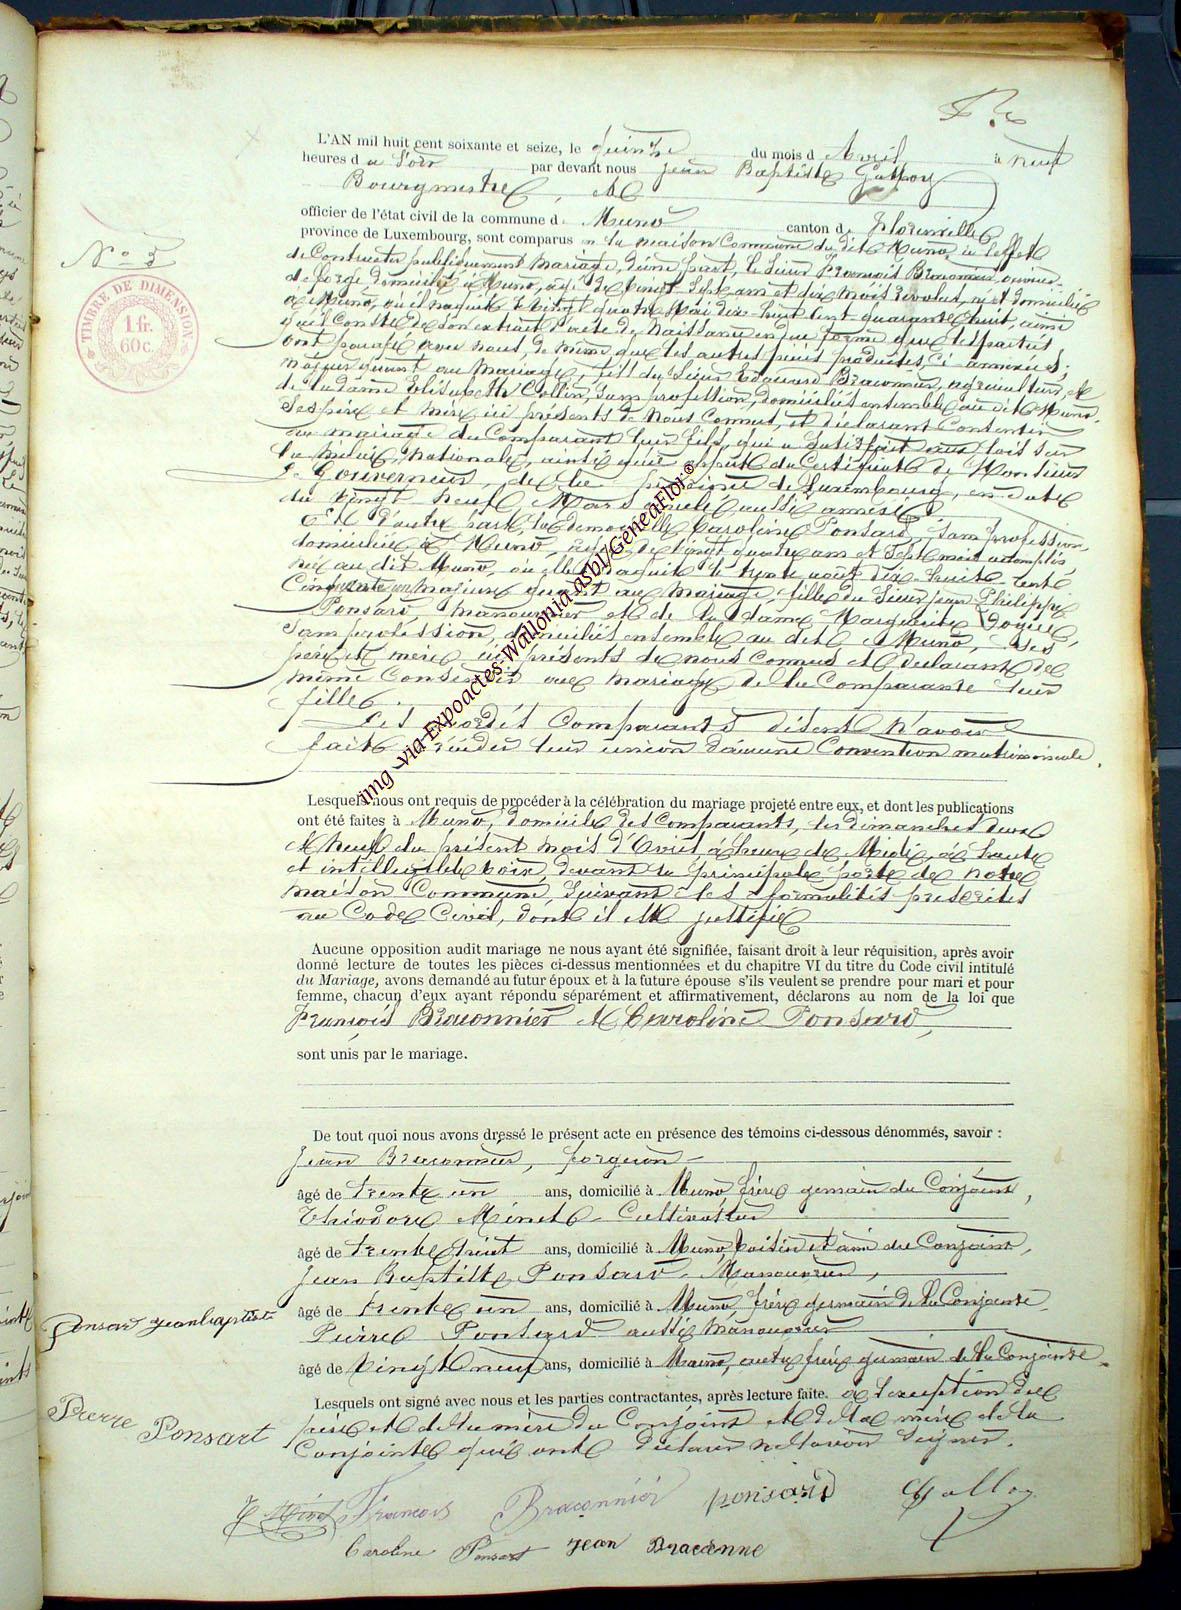 L'AN mil huit cent soixante et seize, le quinze du mois d'Avril à neuf
heures d u Soir par devant nous Jean Baptiste
Bourgmestre,
officier de l'état civil de la commune d e Muno canton de Florenville
province de Luxembourg, sont comparus en la maison Commune du dit Muno, à l'effet
N° 5
TIMBRE DE DIMENSION
1 fr.
60c.
de Contracter publiquement Mariage, d'une part, le Sieur François Braconnier, ouvrier
de forge domicilié à Muno, âgé de vingt Sept ans et dix mois révolus, né et domicilié
à Muno, où il naquit le vingt quatre Mai dix-huit cent quarante huit, ainsi
qu'il Conste de son extrait d'acte de Naissance en due forme que les parties
ont par nous, de même que les autres pièces produites, ci-annexées;
Majeur quant au Mariage, fils du Sieur Edouard Braconnier, agriculteur, et
de la dame Elisabeth Collin, Sans profession, domiciliés ensemble au dit Muno
Ses père et mère ici présents de Nous Connus, et déclarant Consentir
au mariage du Comparant leur fils, qui a Satisfait aux lois sur
la milice Nationale, ainsi qu'il appert du Certificat de Monsieur
le Gouverneur de la province de Luxembourg, en date
du vingt neuf Mars aussi annexé
Et d'autre part, la demoiselle Caroline Ponsard, Sans profession,
domiciliée à Muno, âgée de vingt quatre ans et Sept mois accomplis
née au dit Muno, où elle naquit le trente août dix-huit-cent
Cinquante un Majeure quant au Mariage, fille du Sieur Jean Philippe
Ponsard, manouvrier et de la dame Marguerite
Sans profession, domiciliés ensemble au dit Muno, Ses
père et mère ici présents de nous Connus et déclarant de
même Consentir au mariage de la Comparante leur
fille.
Les Comparants disent n'avoir
fait leur union d'aucune Convention matrimoniale.
Lesquels nous ont requis de procéder à la célébration du mariage projeté entre eux, et dont les publications
ont été faites à Muno, domicile des Comparants, les dimanches deux
et Neuf du présent mois d'Avril à l'heure de Midi, à haute
et intelligible voix, devant la principale porte de notre
maison Commune, Suivant les formalités prescrites
au Code Civil, dont il est justifié
Aucune opposition audit mariage ne nous ayant été signifiée, faisant droit à leur réquisition, après avoir
donné lecture de toutes les pièces ci-dessus mentionnées et du chapitre VI du titre du Code civil intitulé
du Mariage, avons demandé au futur époux et à la future épouse s'ils veulent se prendre pour mari et pour
femme, chacun d'eux ayant répondu séparément et affirmativement, déclarons au nom de la loi que
François Braconnier et Caroline Ponsard,
sont unis par le mariage.
De tout quoi nous avons dressé le présent acte en présence des témoins ci-dessous dénommés, savoir :
Jean Braconnier, forgeron
âgé de trente un ans, domicilié à Muno, frère germain du Conjoint,
Théodore Minet, Cultivateur
âgé de trente huit ans, domicilié à Muno, voisin et ami du Conjoint,
Jean Baptiste Ponsard, Manouvrier,
âgé de trente un ans, domicilié à Muno, frère germain de la Conjointe
Pierre Ponsard aussi Manouvrier
âgé de vingt neuf ans, domicilié à Muno, autre frère germain de la Conjointe.
Lesquels ont signé avec nous et les parties contractantes, après lecture faite. à l'exception des
père et de la mère du Conjoint et de la mère de la
Conjointe qui ont déclaré ne Savoir Signer.
Ponsard jeanbaptiste
Pierre Ponsart
T Minet François Braconnier ponsard
Caroline Ponsart jean Braconnie
img -via-Expoactes-Wallonia-asbl/GeneaFlor©